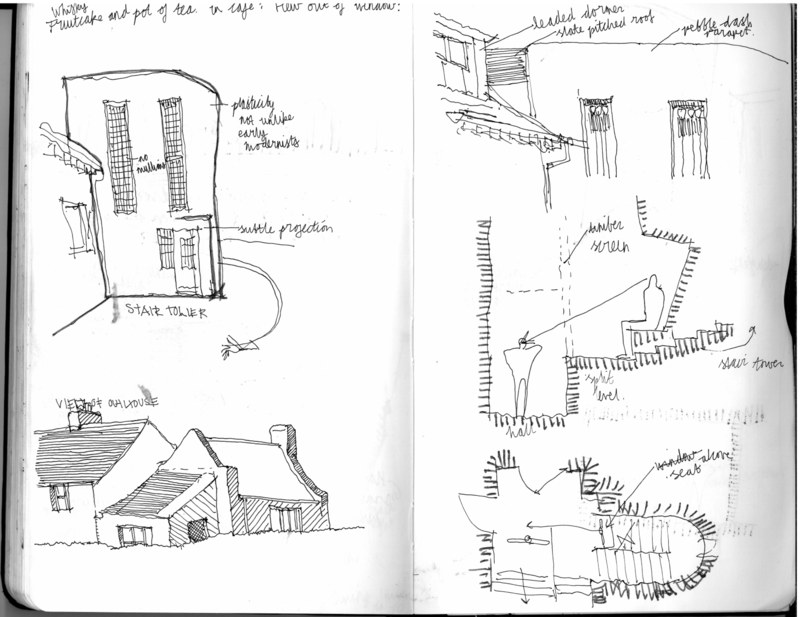 Whisky
Fruitcake and pot of tea in café: View out of window:
plasticity
not unlike
early
modernists
no
mullions
subtle projection
STAIR TOWER
VIEW OF
leaded dormer
slate pitched roof
pebble dash
parapet
timber
screen
split
level.
stair tower
hall
window above
seat